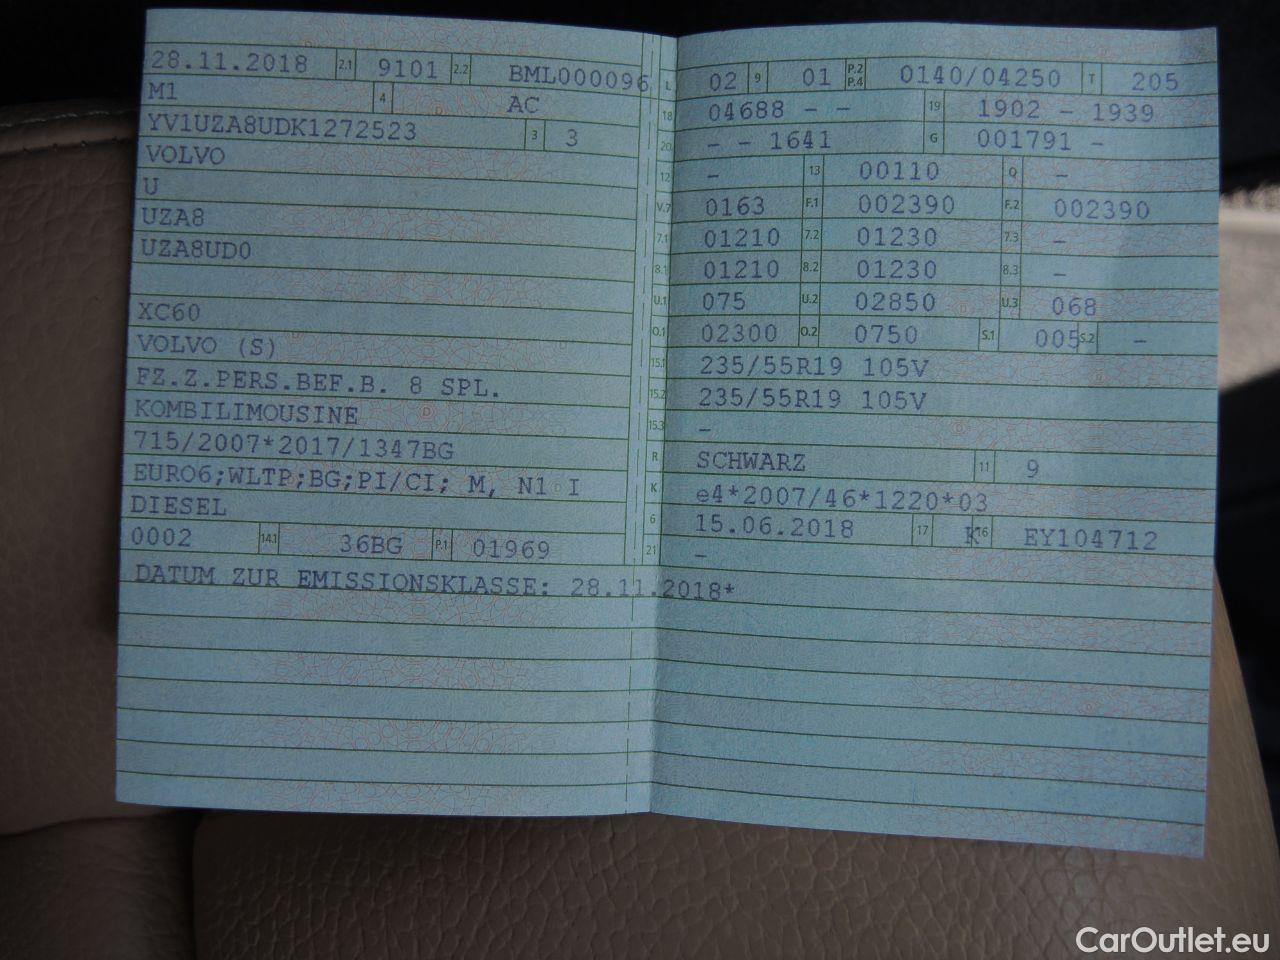 28.11.2018 2.1 9101 2.2 BML000096
M1 4 AC
YV1UZA8UDK1272523 3 3
VOLVO
U
UZA8
UZA8UD0
XC60
VOLVO (S)
FZ.Z.PERS.BEF.B. 8 SPL.
KOMBILIMOUSINE
715/2007*2017/1347BG
EURO6;WLTP;BG;PI/CI; M, N1 I
DIESEL
0002 14.1 36BG P.1 01969
DATUM ZUR EMISSIONSKLASSE: 28.11.2018*
L 02 9 01 P.2 P.4 0140/04250 T 205
18 04688 - - 19 1902 - 1939
20 - - 1641 G 001791 -
12 - 13 00110 Q -
V.7 0163 F.1 002390 F.2 002390
7.1 01210 7.2 01230 7.3 -
8.1 01210 8.2 01230 8.3 -
U.1 075 U.2 02850 U.3 068
O.1 02300 O.2 0750 S.1 005 S.2 -
15.1 235/55R19 105V
15.2 235/55R19 105V
15.3 -
R SCHWARZ 11 9
K e4*2007/46*1220*03
6 15.06.2018 17 K 16 EY104712
21 -
CarOutlet.eu